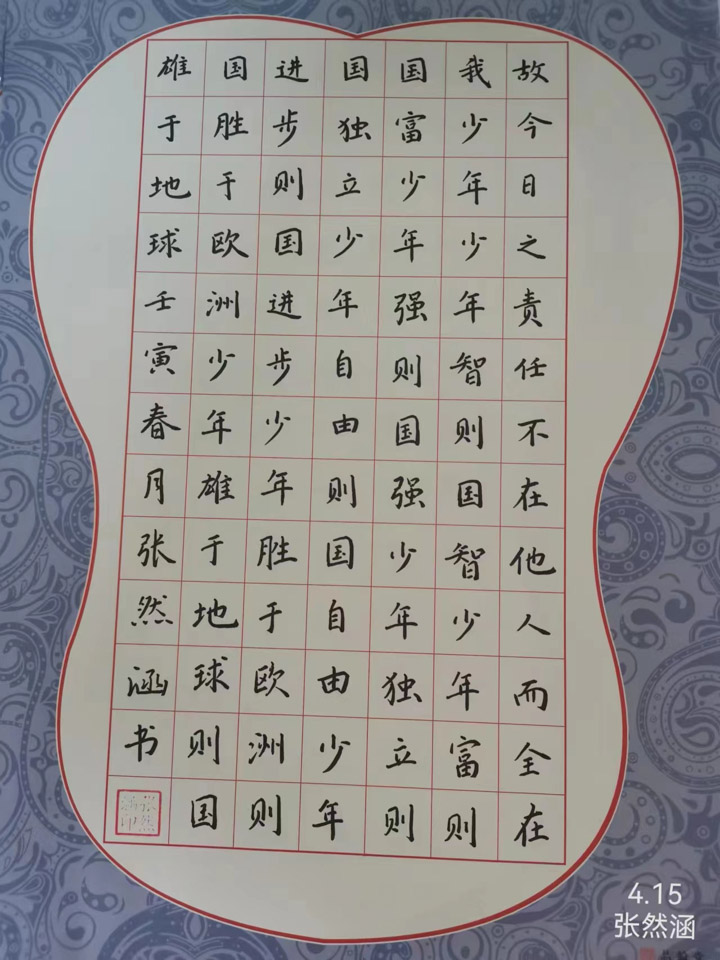 故今日之责任不在他人而全在
我少年少年智则国智少年富则
国富少年强则国强少年独立则
国独立少年自由则国自由少年
进步则国进步少年胜于欧洲则
国胜于欧洲少年雄于地球则国
雄于地球壬寅春月张然涵书
张然涵印
4.15
张然涵